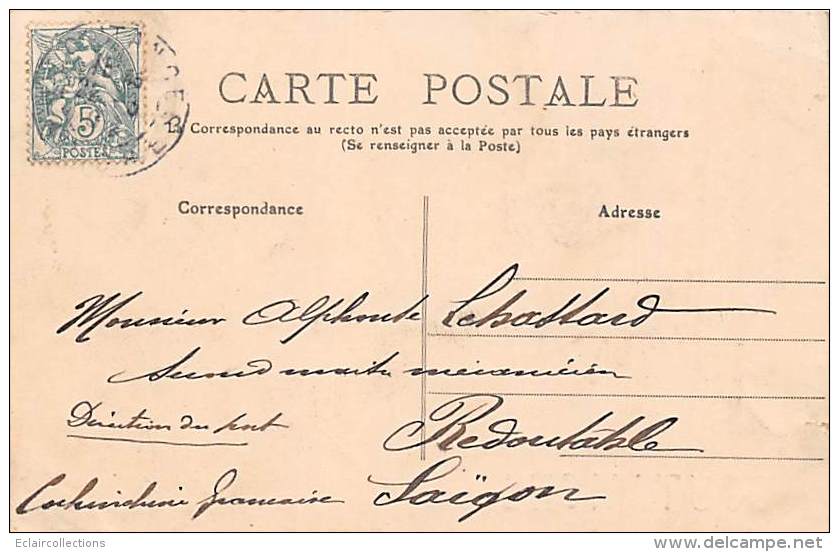 5c
POSTES
CARTE POSTALE
La Correspondance au recto n'est pas acceptée par tous les pays étrangers
(Se renseigner à la Poste)
Correspondance
Adresse
Monsieur Alphonse Lehattard
Second maitre mécanicien
Direction du port
Redoutable
Cochinchine française
Saïgon
Eclaircollections
www.delcampe.net